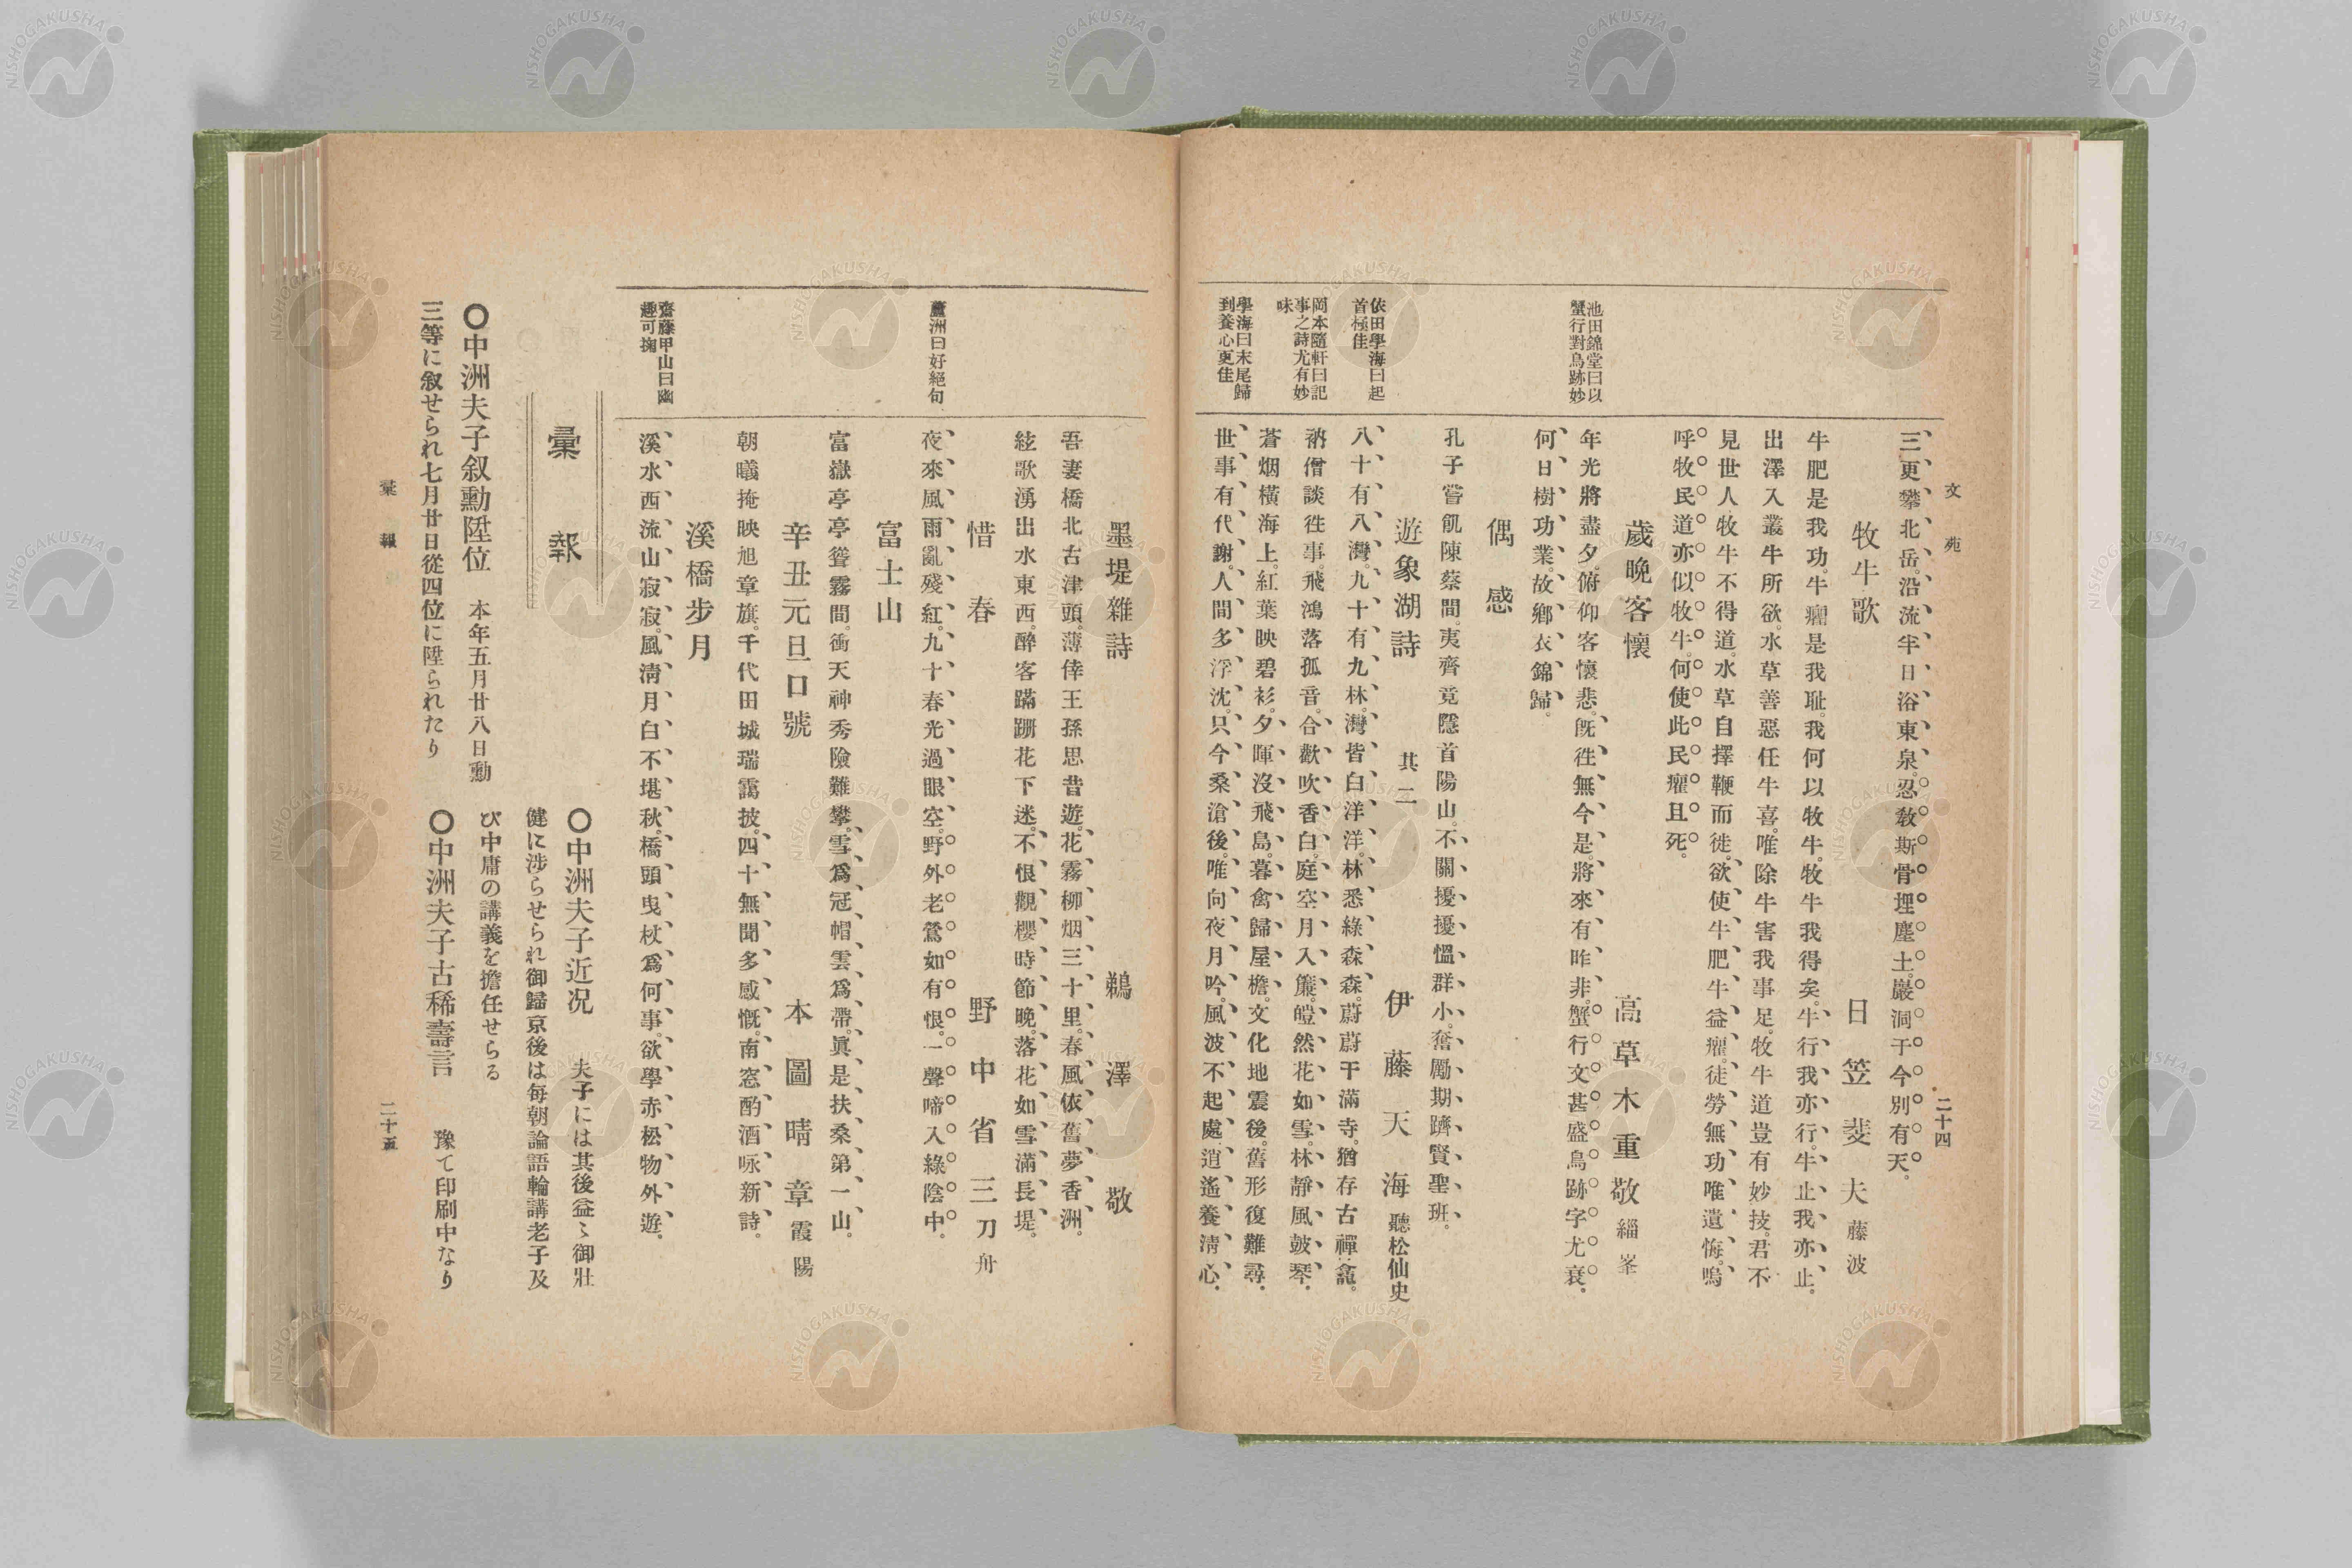 文苑
二十四
三更攀北岳。沿流半日浴東泉。忍敎斯骨埋塵土。巖洞于今別有天。
牧牛歌
日笠斐夫 藤波
牛肥是我功。牛癯是我耻。我何以牧牛。牧牛我得矣。牛行我亦行。牛止我亦止。
出澤入叢牛所欲。水草善惡任牛喜。唯除牛害我事足。牧牛道豈有妙技。君不
見世人牧牛不得道。水草自擇鞭而徒。欲使牛肥牛益癯。徒勞無功唯遺悔。嗚
呼牧民道亦似牧牛。何使此民癯且死。
池田錦堂曰以
蟹行對鳥跡妙
歲晩客懷
高草木重敬 緇峯
年光將盡夕。俯仰客懷悲。旣徃無今是。將來有昨非。蟹行文甚盛。鳥跡字尤衰。
何日樹功業。故鄕衣錦歸。
偶感
孔子嘗飢陳蔡間。夷齊竟隱首陽山。不關擾擾慍群小。奮勵期躋賢聖班。
依田學海曰起
首極佳
遊象湖詩 其二
伊藤天海 聽松仙史
八十有八灣。九十有九林。灣皆白洋洋。林悉綠森森。蔚蔚干滿寺。猶存古禪龕。
岡本隨軒曰記
事之詩尤有妙
味
衲僧談徃事。飛鴻落孤音。合歡吹香白。庭空月入簾。皚然花如雪。林靜風鼓琴。
蒼烟橫海上。紅葉映碧衫。夕暉沒飛島。暮禽歸屋檐。文化地震後。舊形復難尋。
學海曰末尾歸
到養心更佳
世事有代謝。人間多浮沈。只今桑滄後。唯向夜月吟。風波不起處。逍遙養淸心。
墨堤雜詩
鵜澤敬
吾妻橋北古津頭。薄倖王孫思昔遊。花霧柳烟三十里。春風依舊夢香洲。
絃歌湧出水東西。醉客蹣跚花下迷。不恨觀櫻時節晩。落花如雪滿長堤。
惜春
野中省三 刀舟
蘆洲曰好絕句
夜來風雨亂殘紅。九十春光過眼空。野外老鶯如有恨。一聲啼入綠陰中。
富士山
富嶽亭亭聳霧間。衝天神秀險難攀。雪爲冠帽雲爲帶。眞是扶桑第一山。
辛丑元旦口號
本圖晴章 霞陽
朝曦掩映旭章旗。千代田城瑞靄披。四十無聞多感慨。南窓酌酒咏新詩。
溪橋步月
齋藤甲山曰幽
趣可掬
溪水西流山寂寂。風淸月白不堪秋。橋頭曳杖爲何事。欲學赤松物外遊。
彙報
〇中洲夫子叙勳陞位 本年五月廿八日勳
三等に叙せられ七月廿日從四位に陞られたり
〇中洲夫子近况 夫子には其後益〻御壯
健に涉らせられ御歸京後は每朝論語輪講老子及
び中庸の講義を擔任せらる
〇中洲夫子古稀壽言 豫て印刷中なり
彙報
二十五
NISHOGAKUSHA